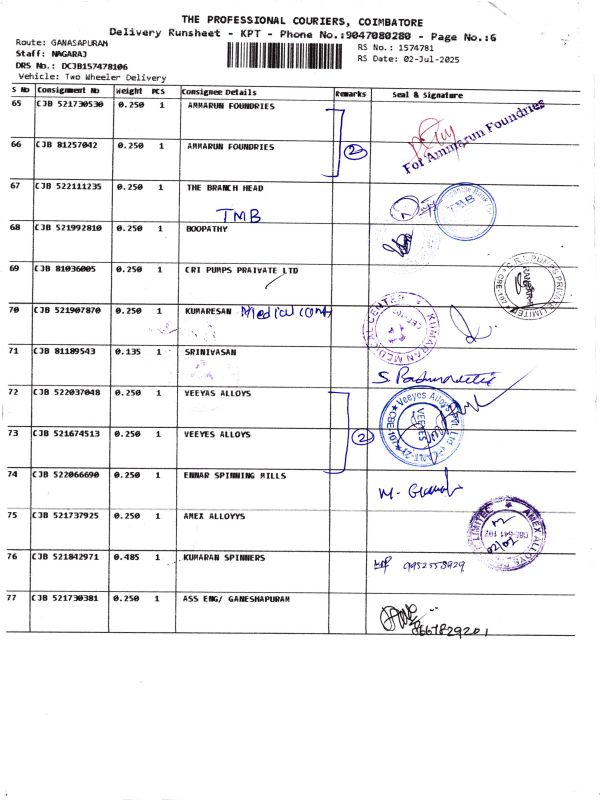 THE PROFESSIONAL COURIERS, COIMBATORE
Delivery Runsheet - KPT - Phone No.:9047080280 - Page No.:6
Route: GANASAPURAM
Staff: NAGARAJ
DRS No.: DCJB157478106
Vehicle: Two Wheeler Delivery
RS No.: 1574781
RS Date: 02-Jul-2025
S No Consignment No Weight PCS Consignee Details Remarks Seal & Signature
65 CJB 521730530 0.250 1 AMMARUN FOUNDRIES
For Ammarun Foundries
66 CJB 81257042 0.250 1 AMMARUN FOUNDRIES
2
67 CJB 522111235 0.250 1 THE BRANCH HEAD
TMB
TMB
68 CJB 521992810 0.250 1 BOOPATHY
69 CJB 81036005 0.250 1 CRI PUMPS PRAIVATE LTD
C.R.I. PUMPS PRIVATE LIMITED
70 CJB 521907870 0.250 1 KUMARESAN Medical
KUMARAN MEDICAL CENTER
71 CJB 81189543 0.135 1 SRINIVASAN
72 CJB 522037048 0.250 1 VEEYAS ALLOYS
Veeyes Alloys Pvt. Ltd
VEEYES
73 CJB 521674513 0.250 1 VEEYES ALLOYS
2
74 CJB 522066690 0.250 1 ENNAR SPINNING MILLS
75 CJB 521737925 0.250 1 AMEX ALLOYYS
AMEX ALLOYS
LIMITED
76 CJB 521842971 0.485 1 KUMARAN SPINNERS
9952558929
77 CJB 521730381 0.250 1 ASS ENG/ GANESHAPURAM
8667829201